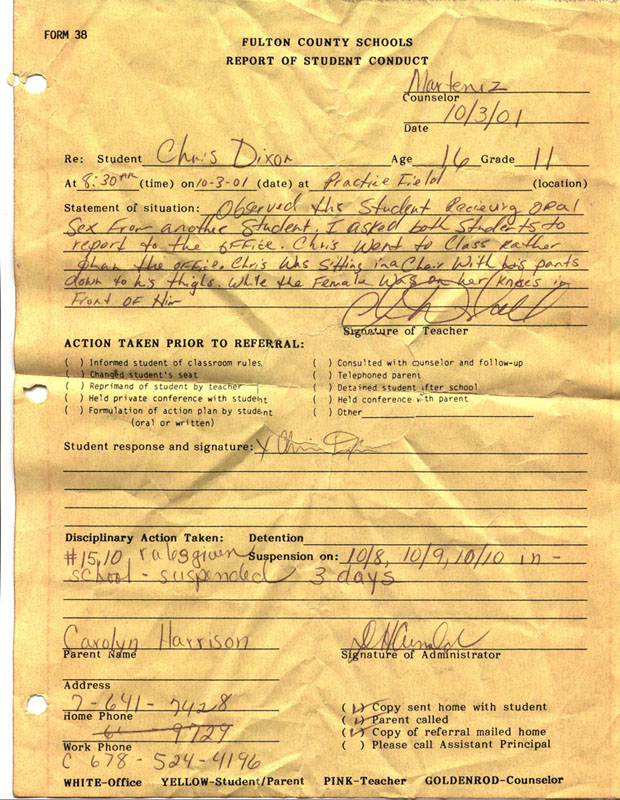 FORM 38
FULTON COUNTY SCHOOLS
REPORT OF STUDENT CONDUCT
Marteniz
Counselor
10/3/01
Date
Re: Student Chris Dixon Age 16 Grade 11
At 8:30 AM (time) on 10-3-01 (date) at Practice Field (location)
Statement of situation: Observed this Student Recieving oral
Sex From another Student. I asked both Students to
report to the office. Chris Went to Class Rather
than the office. Chris Was Sitting in a Chair With his pants
down to his thighs while the Female Was on her knees in
Front OF Him
Signature of Teacher
ACTION TAKEN PRIOR TO REFERRAL:
( ) Informed student of classroom rules ( ) Consulted with counselor and follow-up
( ) Changed student's seat ( ) Telephoned parent
( ) Reprimand of student by teacher ( ) Detained student after school
( ) Held private conference with student ( ) Held conference with parent
( ) Formulation of action plan by student ( ) Other
(oral or written)
Student response and signature: X
Disciplinary Action Taken: Detention
#15,10 rules given Suspension on: 10/8, 10/9, 10/10 in-
school - suspended 3 days
Carolyn Harrison
Parent Name Signature of Administrator
Address
7-641-7428 ( ) Copy sent home with student
Home Phone ( ) Parent called
9729 ( ) Copy of referral mailed home
Work Phone ( ) Please call Assistant Principal
C 678-524-4196
WHITE-Office YELLOW-Student/Parent PINK-Teacher GOLDENROD-Counselor